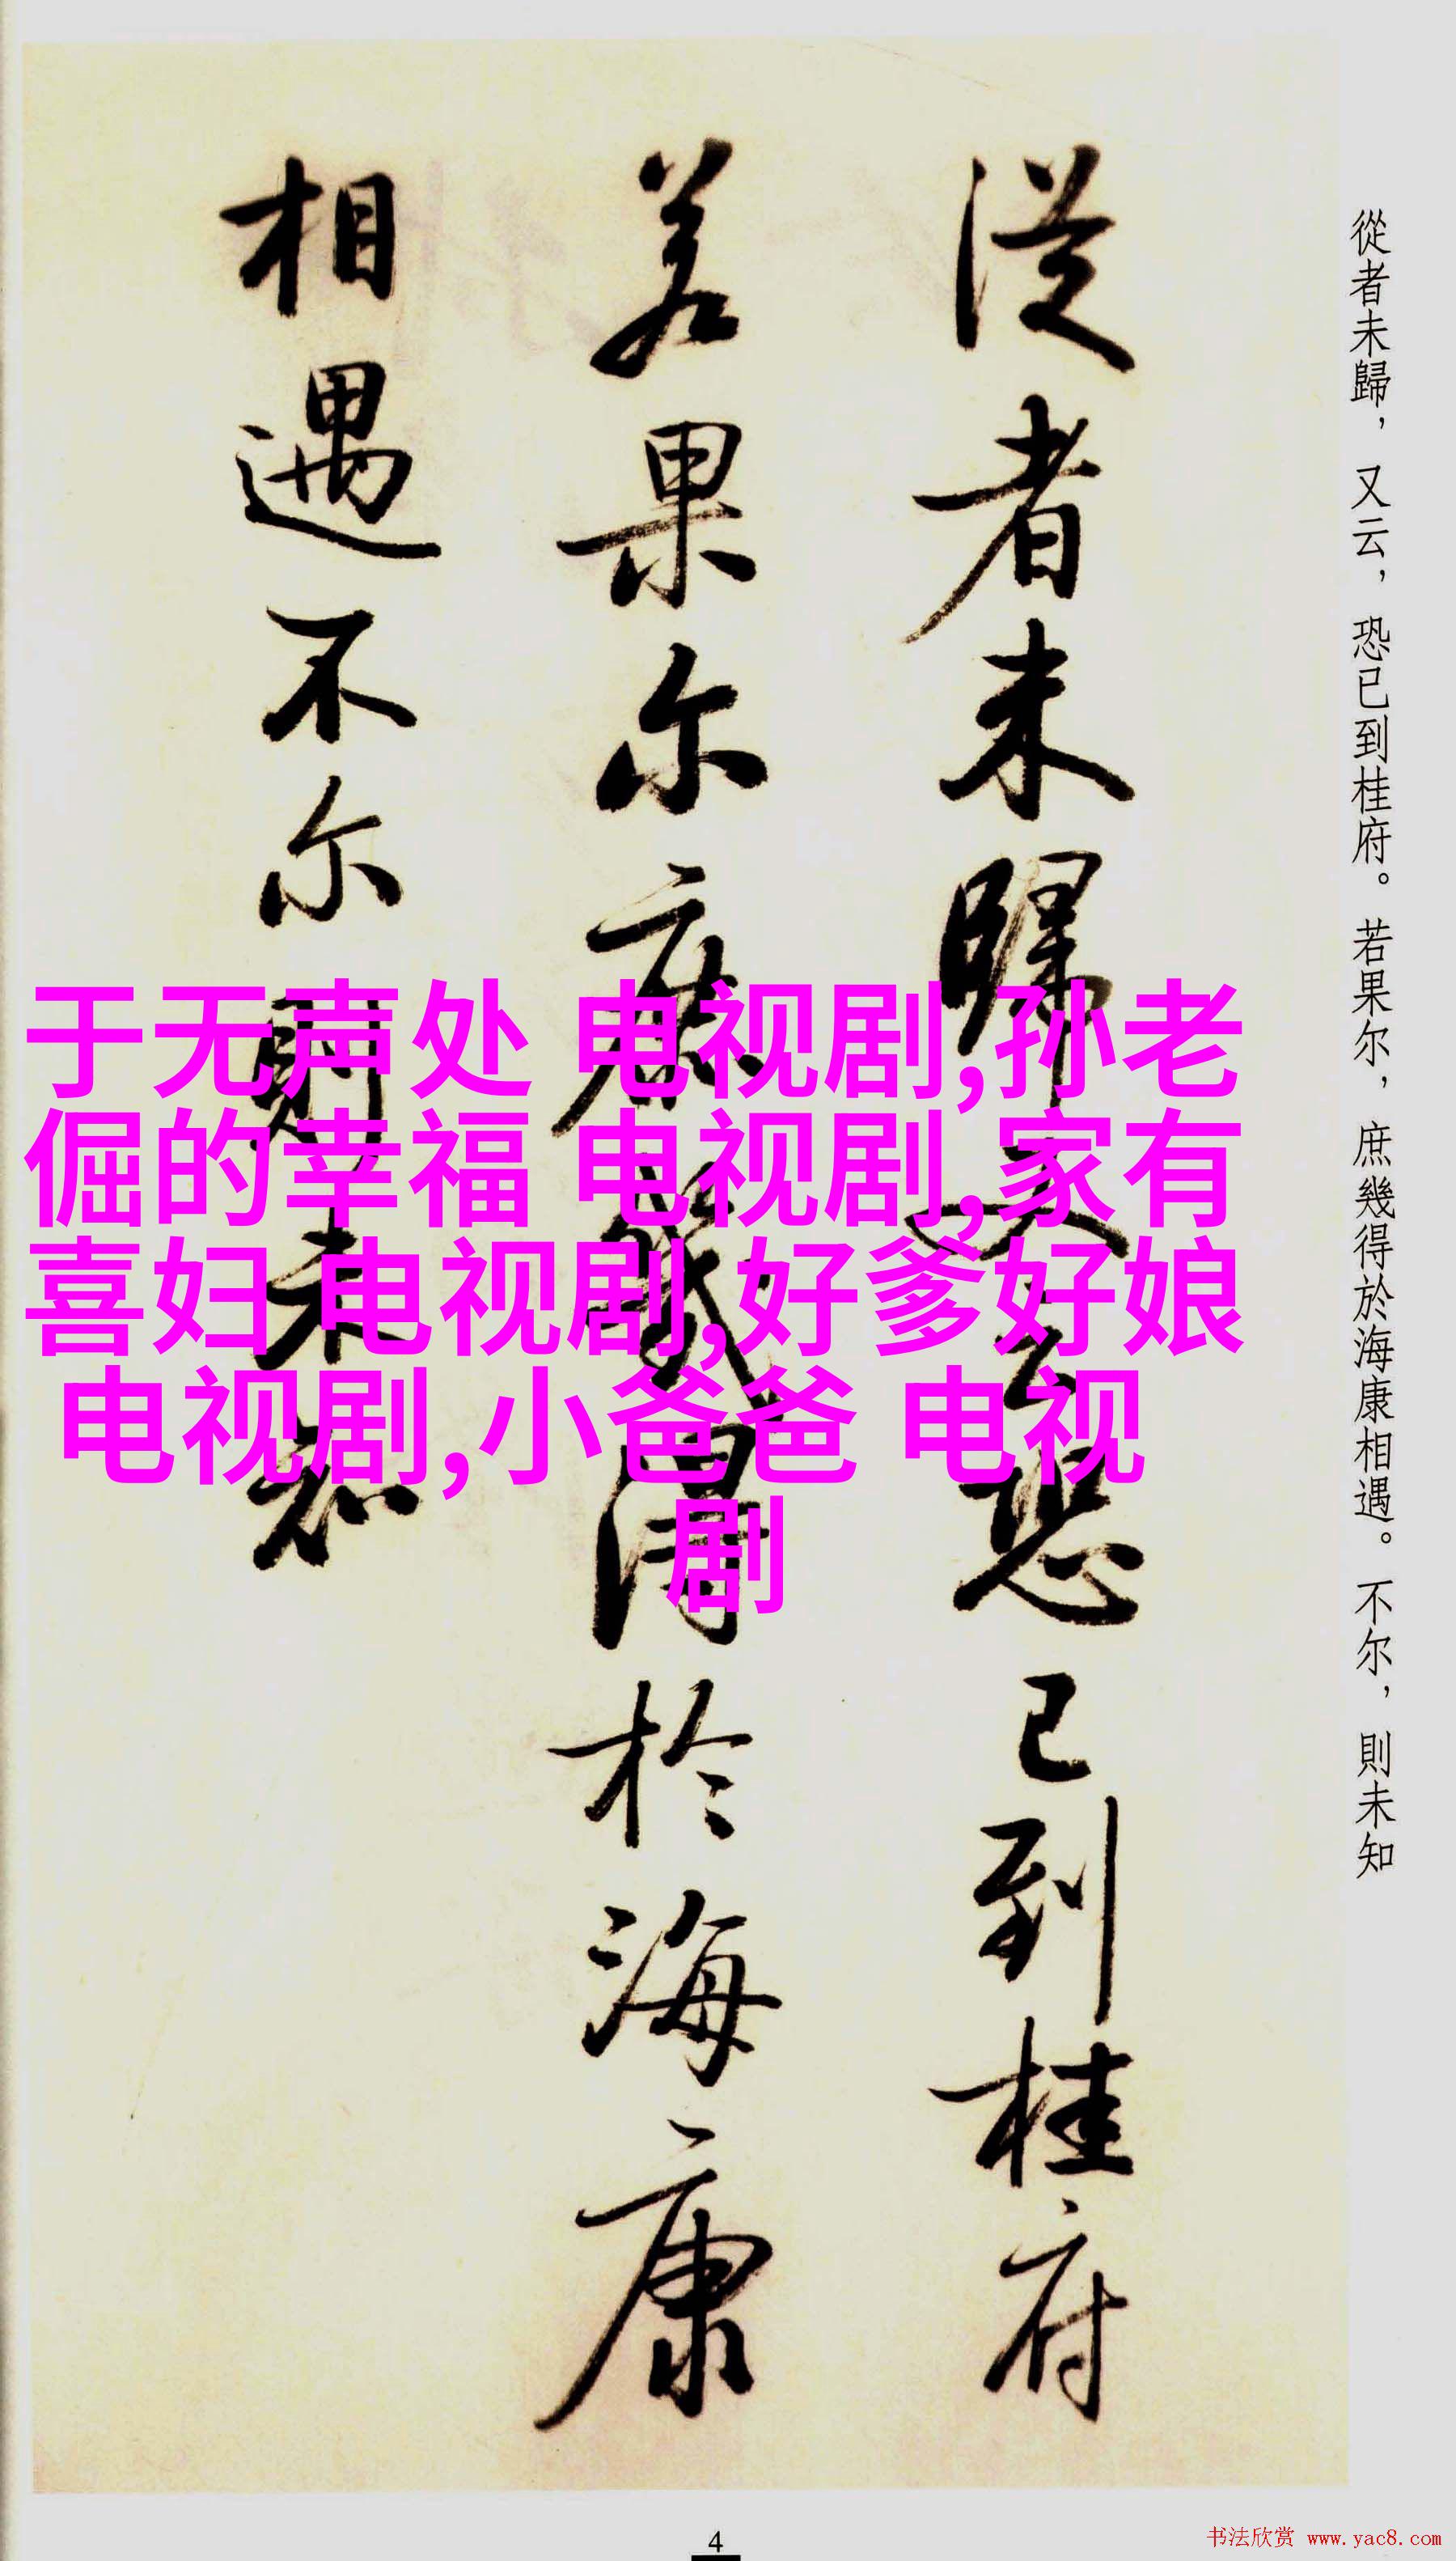 從者未歸，又云，恐已到桂府。若果尔，庶幾得於海康相遇。不尔，則未知
從者未歸又云恐已到桂府
若果尔庶幾得於海康
相遇不尔則未知
于无声处 电视剧,孙老
倔的幸福 电视剧,家有
喜妇 电视剧,好爹好娘
电视剧,小爸爸 电视
剧
4
书法欣赏 www.yac8.com